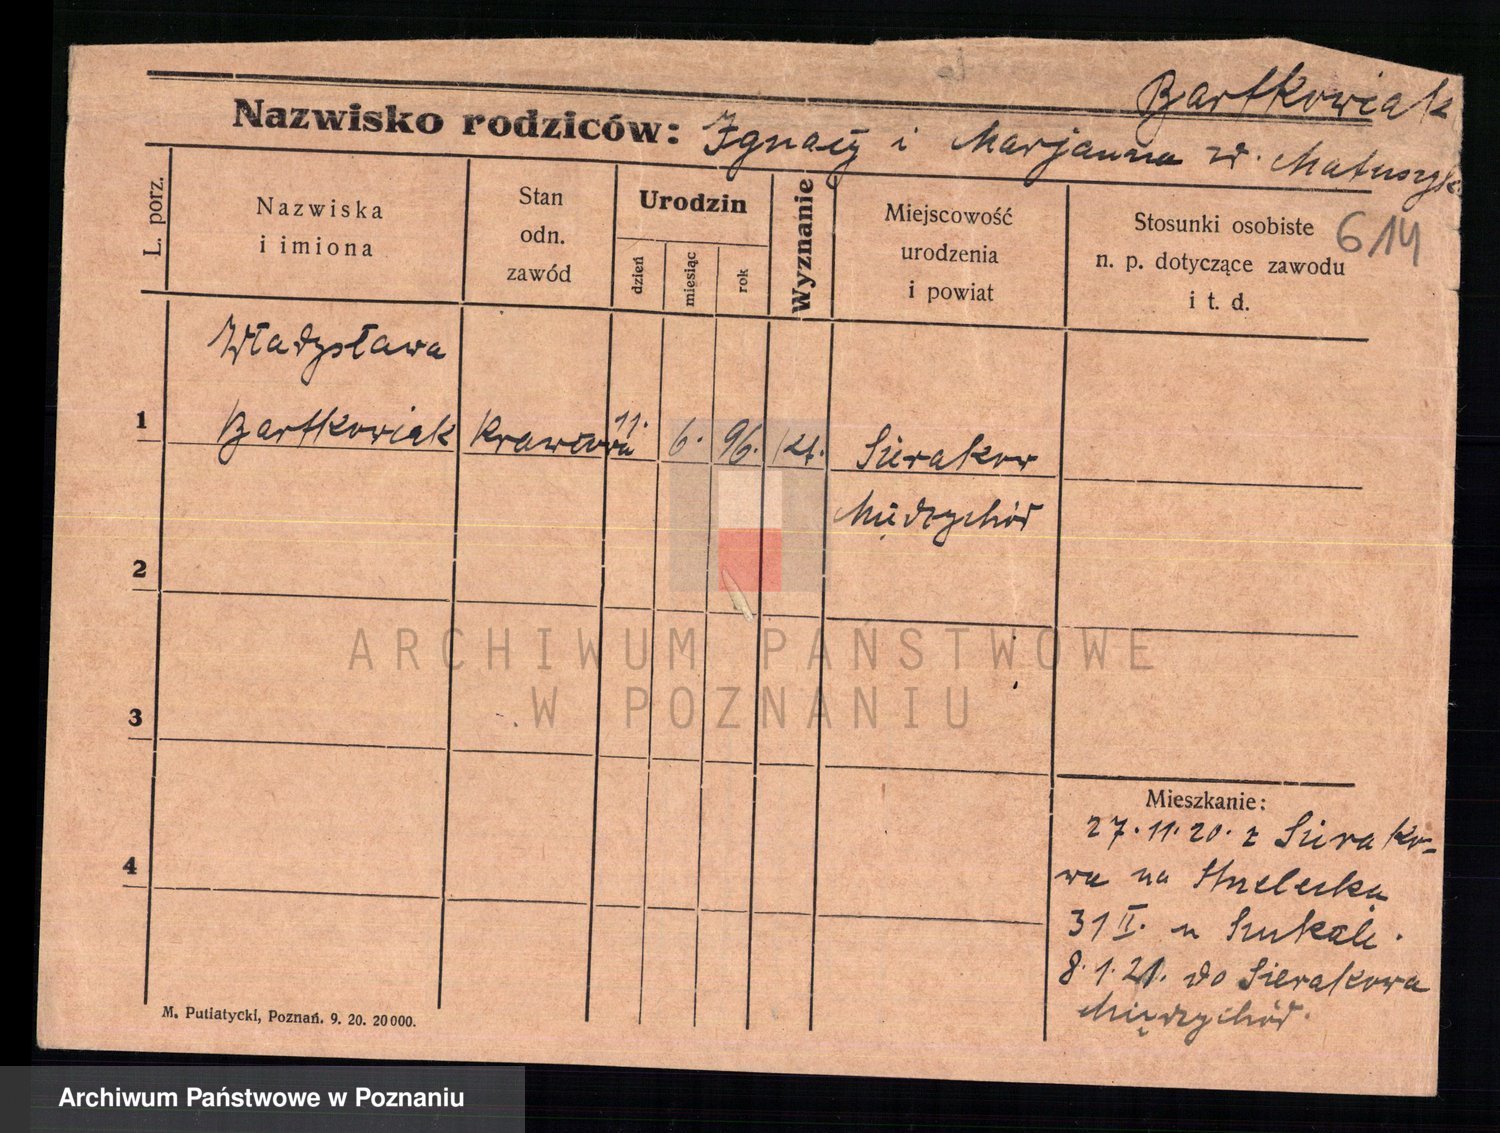 Bartkowiak
Nazwisko rodziców: Ignacy i Marjanna zd. Matuszyk
614
L. porz.
Nazwiska
i imiona
Stan
odn.
zawód
Urodzin
dzień
miesiąc
rok
Wyznanie
Miejscowość
urodzenia
i powiat
Stosunki osobiste
n. p. dotyczące zawodu
i t. d.
Władysława
1 Bartkowiak Krawcowa 11. 6. 96. kat. Sierakow
Międzychód
2
3
4
ARCHIWUM PAŃSTWOWE
W POZNANIU
Mieszkanie:
27.11.20. z Sierako-
wa na Strzelecka
31 II. u Szukale.
8.1.21. do Sierakowa
Międzychód.
M. Putiatycki, Poznań. 9. 20. 20000.
Archiwum Państwowe w Poznaniu